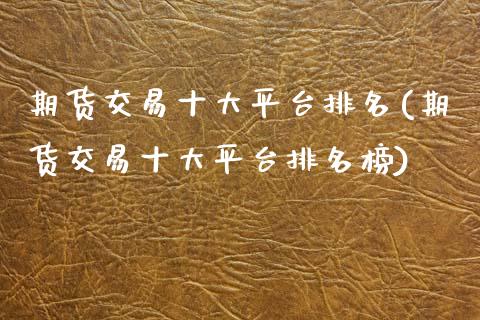 期货交易十大平台排名(期
货交易十大平台排名榜)